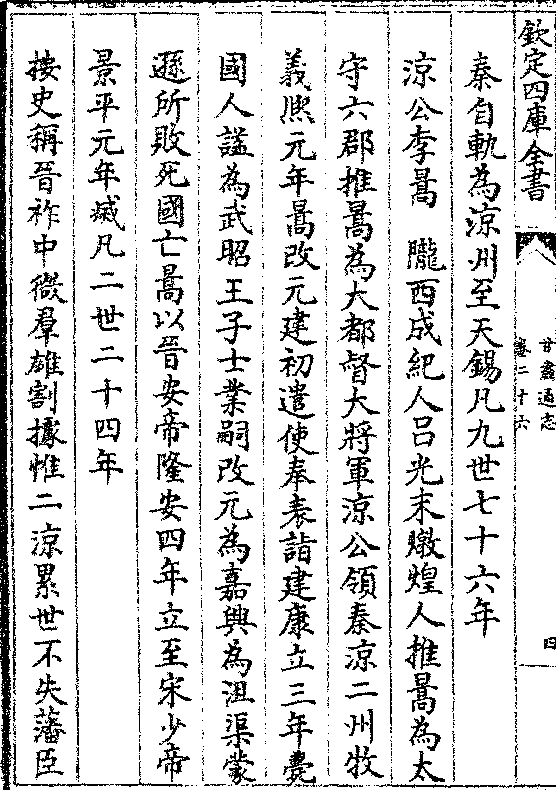 欽定四庫全書
甘肅通志
卷二十六
四
秦自軌為涼州至天錫凡九世七十六年
涼公李暠　隴西成紀人呂光末燉煌人推暠為太
守六郡推暠為大都督大將軍涼公領秦涼二州牧
義熙元年暠改元建初遣使奉表詣建康立三年薨
國人諡為武昭王子士業嗣改元為嘉興為沮渠蒙
遜所敗死國亡暠以晉安帝隆安四年立至宋少帝
景平元年滅凡二世二十四年
按史稱晉祚中微羣雄割據惟二涼累世不失藩臣